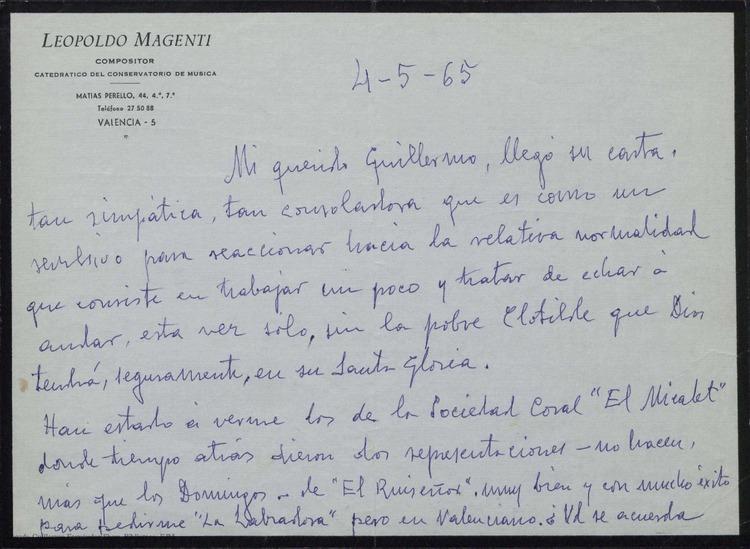 LEOPOLDO MAGENTI
COMPOSITOR
CATEDRATICO DEL CONSERVATORIO DE MUSICA
MATIAS PERELLO, 44, 4.º, 7.ª
Teléfono 27 50 88
VALENCIA - 5
4-5-65
Mi querido Guillermo, llegó su carta,
tan simpática, tan consoladora que es como un
revulsivo para reaccionar hacia la relativa normalidad
que consiste en trabajar un poco y tratar de echar à
andar, esta vez sólo, sin la pobre Clotilde que Dios
tendrá, seguramente, en su Santa Gloria.
Han estado à verme los de la Sociedad Coral "El Micalet"
donde tiempo atrás dieron dos representaciones - no hacen,
más que los Domingos - de "El Ruiseñor", muy bien y con mucho éxito
para pedirme "La Labradora" pero en Valenciano. ¿Vd se acuerda